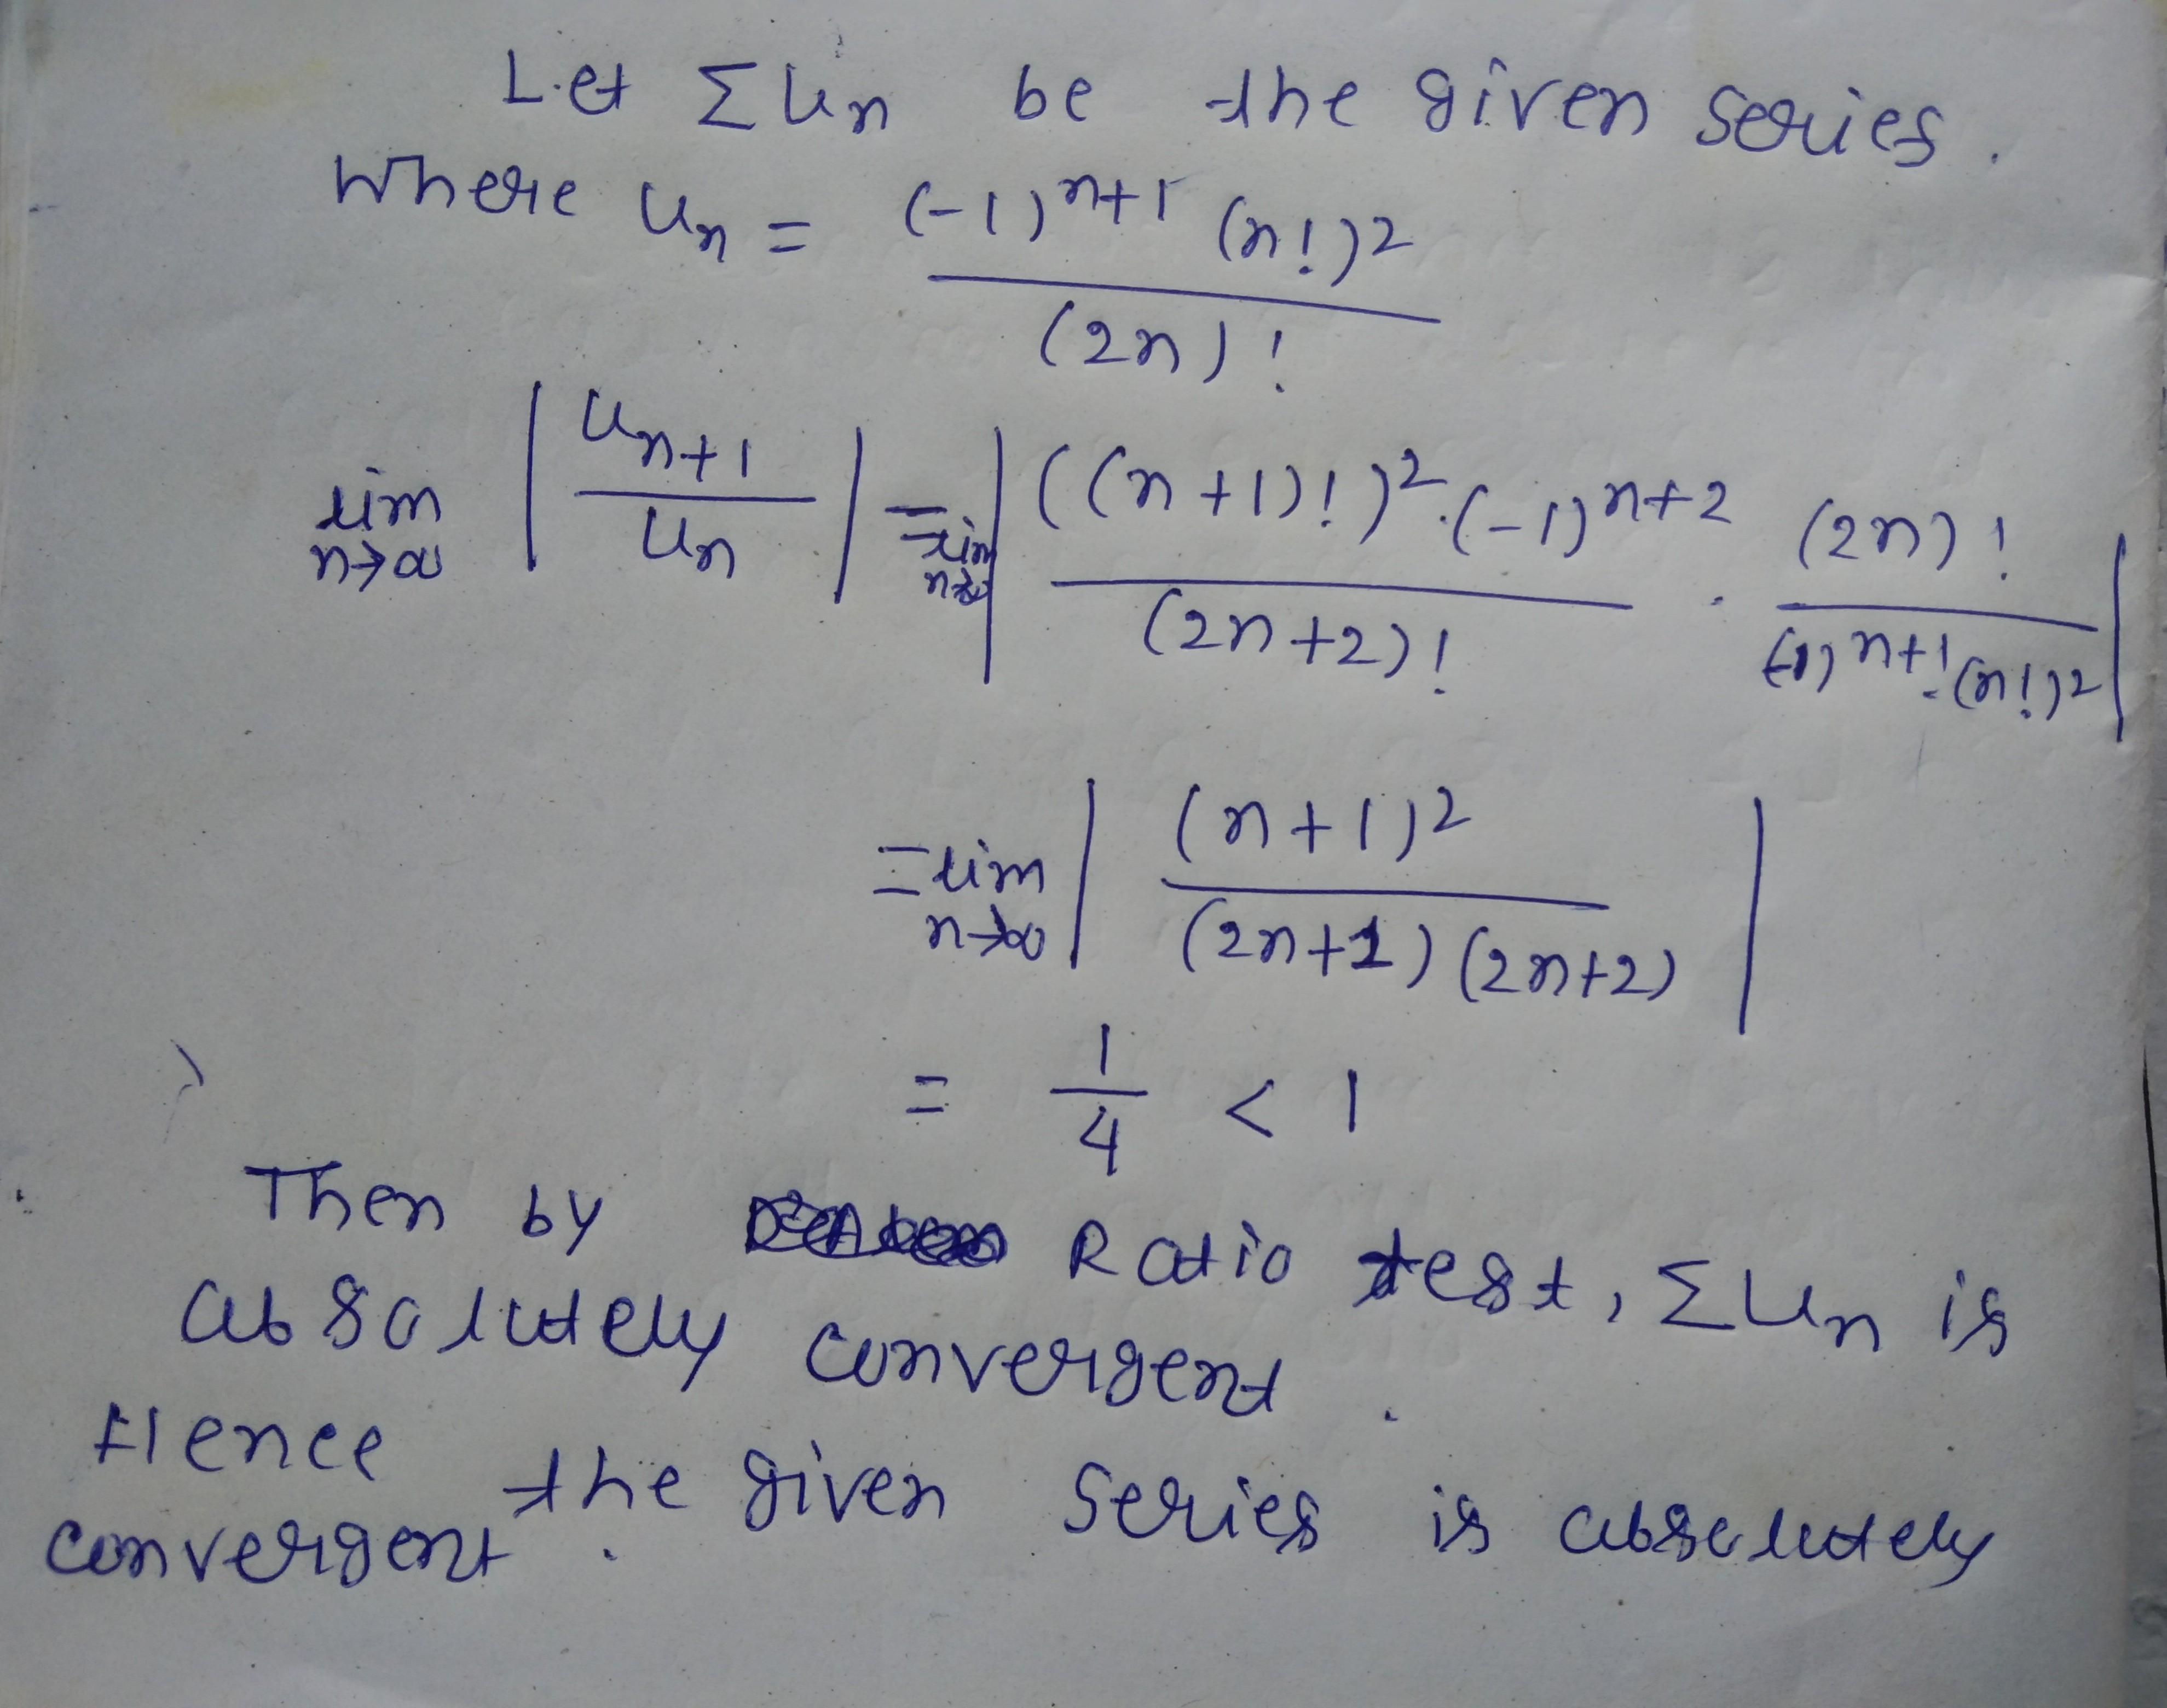 Let Σ Un be the given series.
Where Un = (-1)^n+1 (n!)^2 / (2n)!
lim n→∞ | Un+1 / Un | = lim n→∞ | ((n+1)!)^2 · (-1)^n+2 / (2n+2)! · (2n)! / (-1)^n+1 · (n!)^2 |
= lim n→∞ | (n+1)^2 / (2n+1) (2n+2) |
= 1/4 < 1
Then by Ratio test, Σ Un is
absolutely convergent.
Hence the given series is absolutely
convergent.